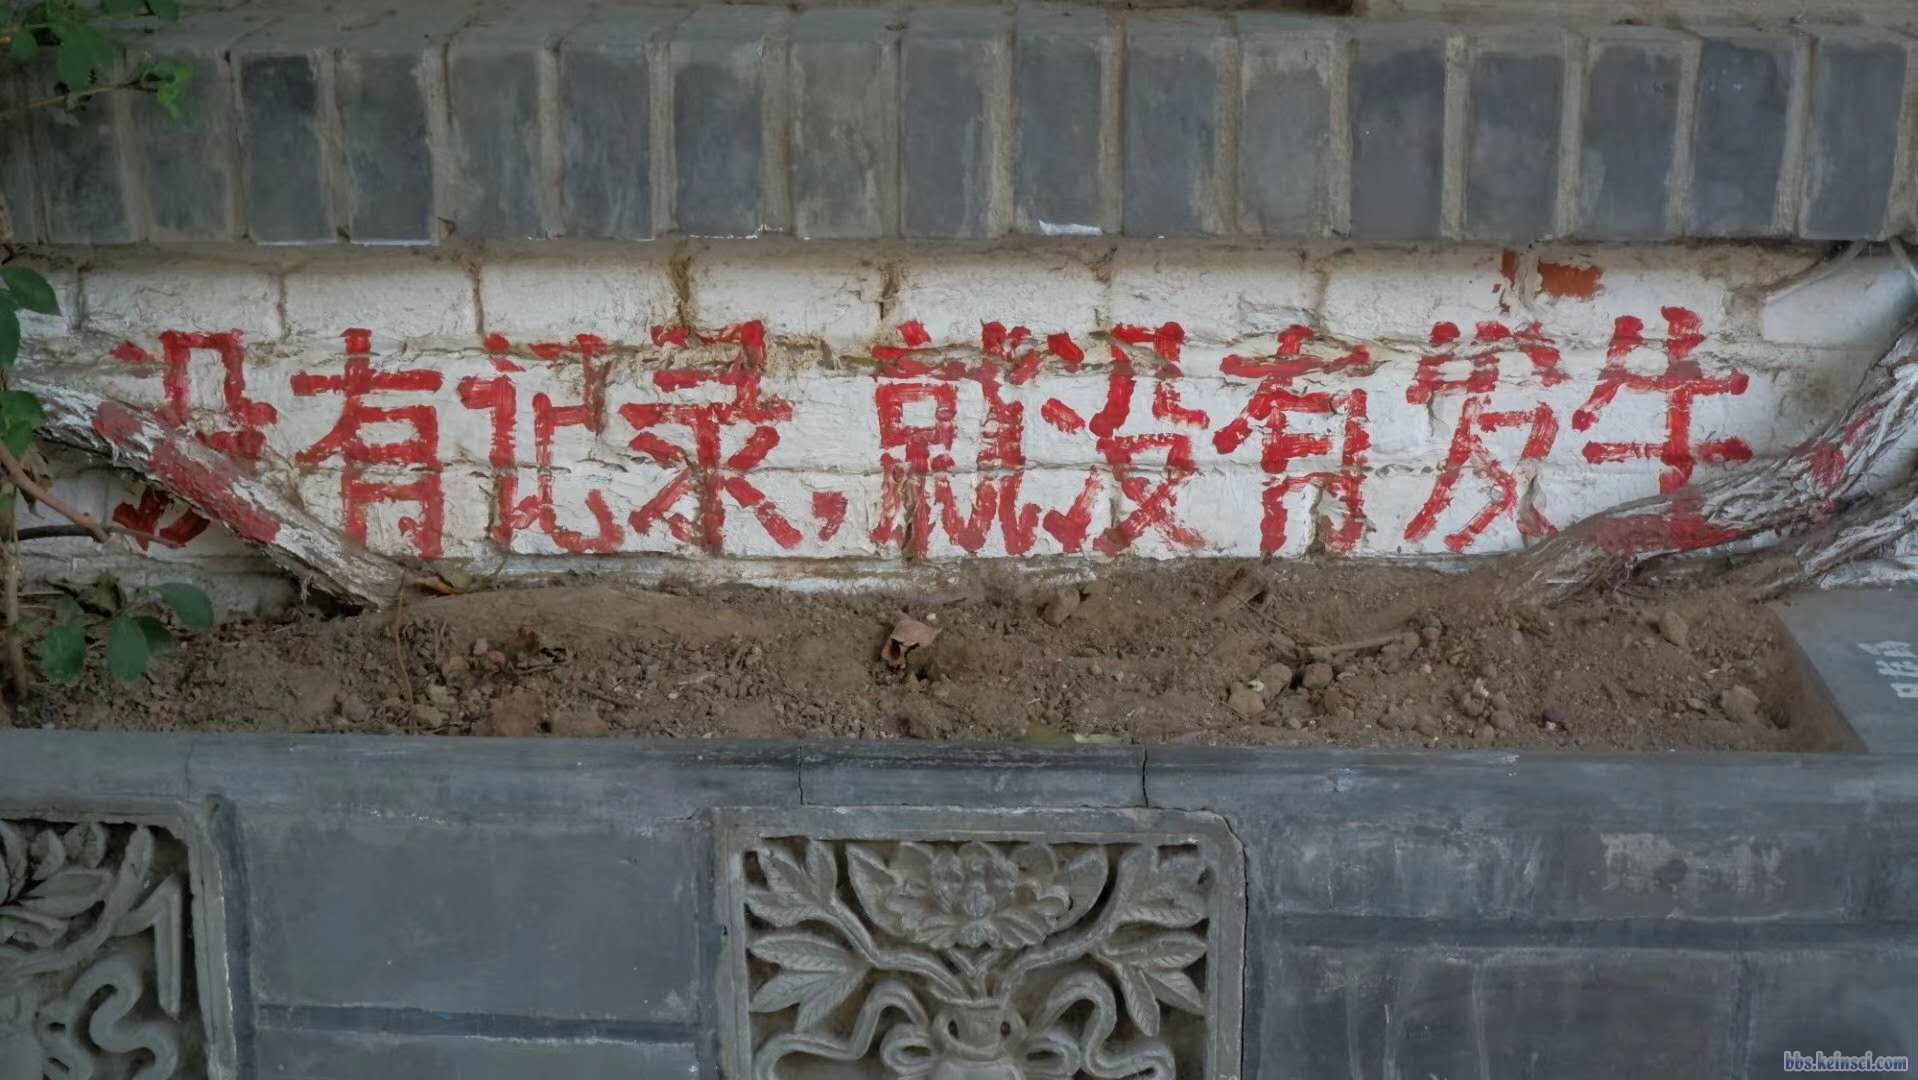 没有记录,就没有发生
bbs.keinsci.com